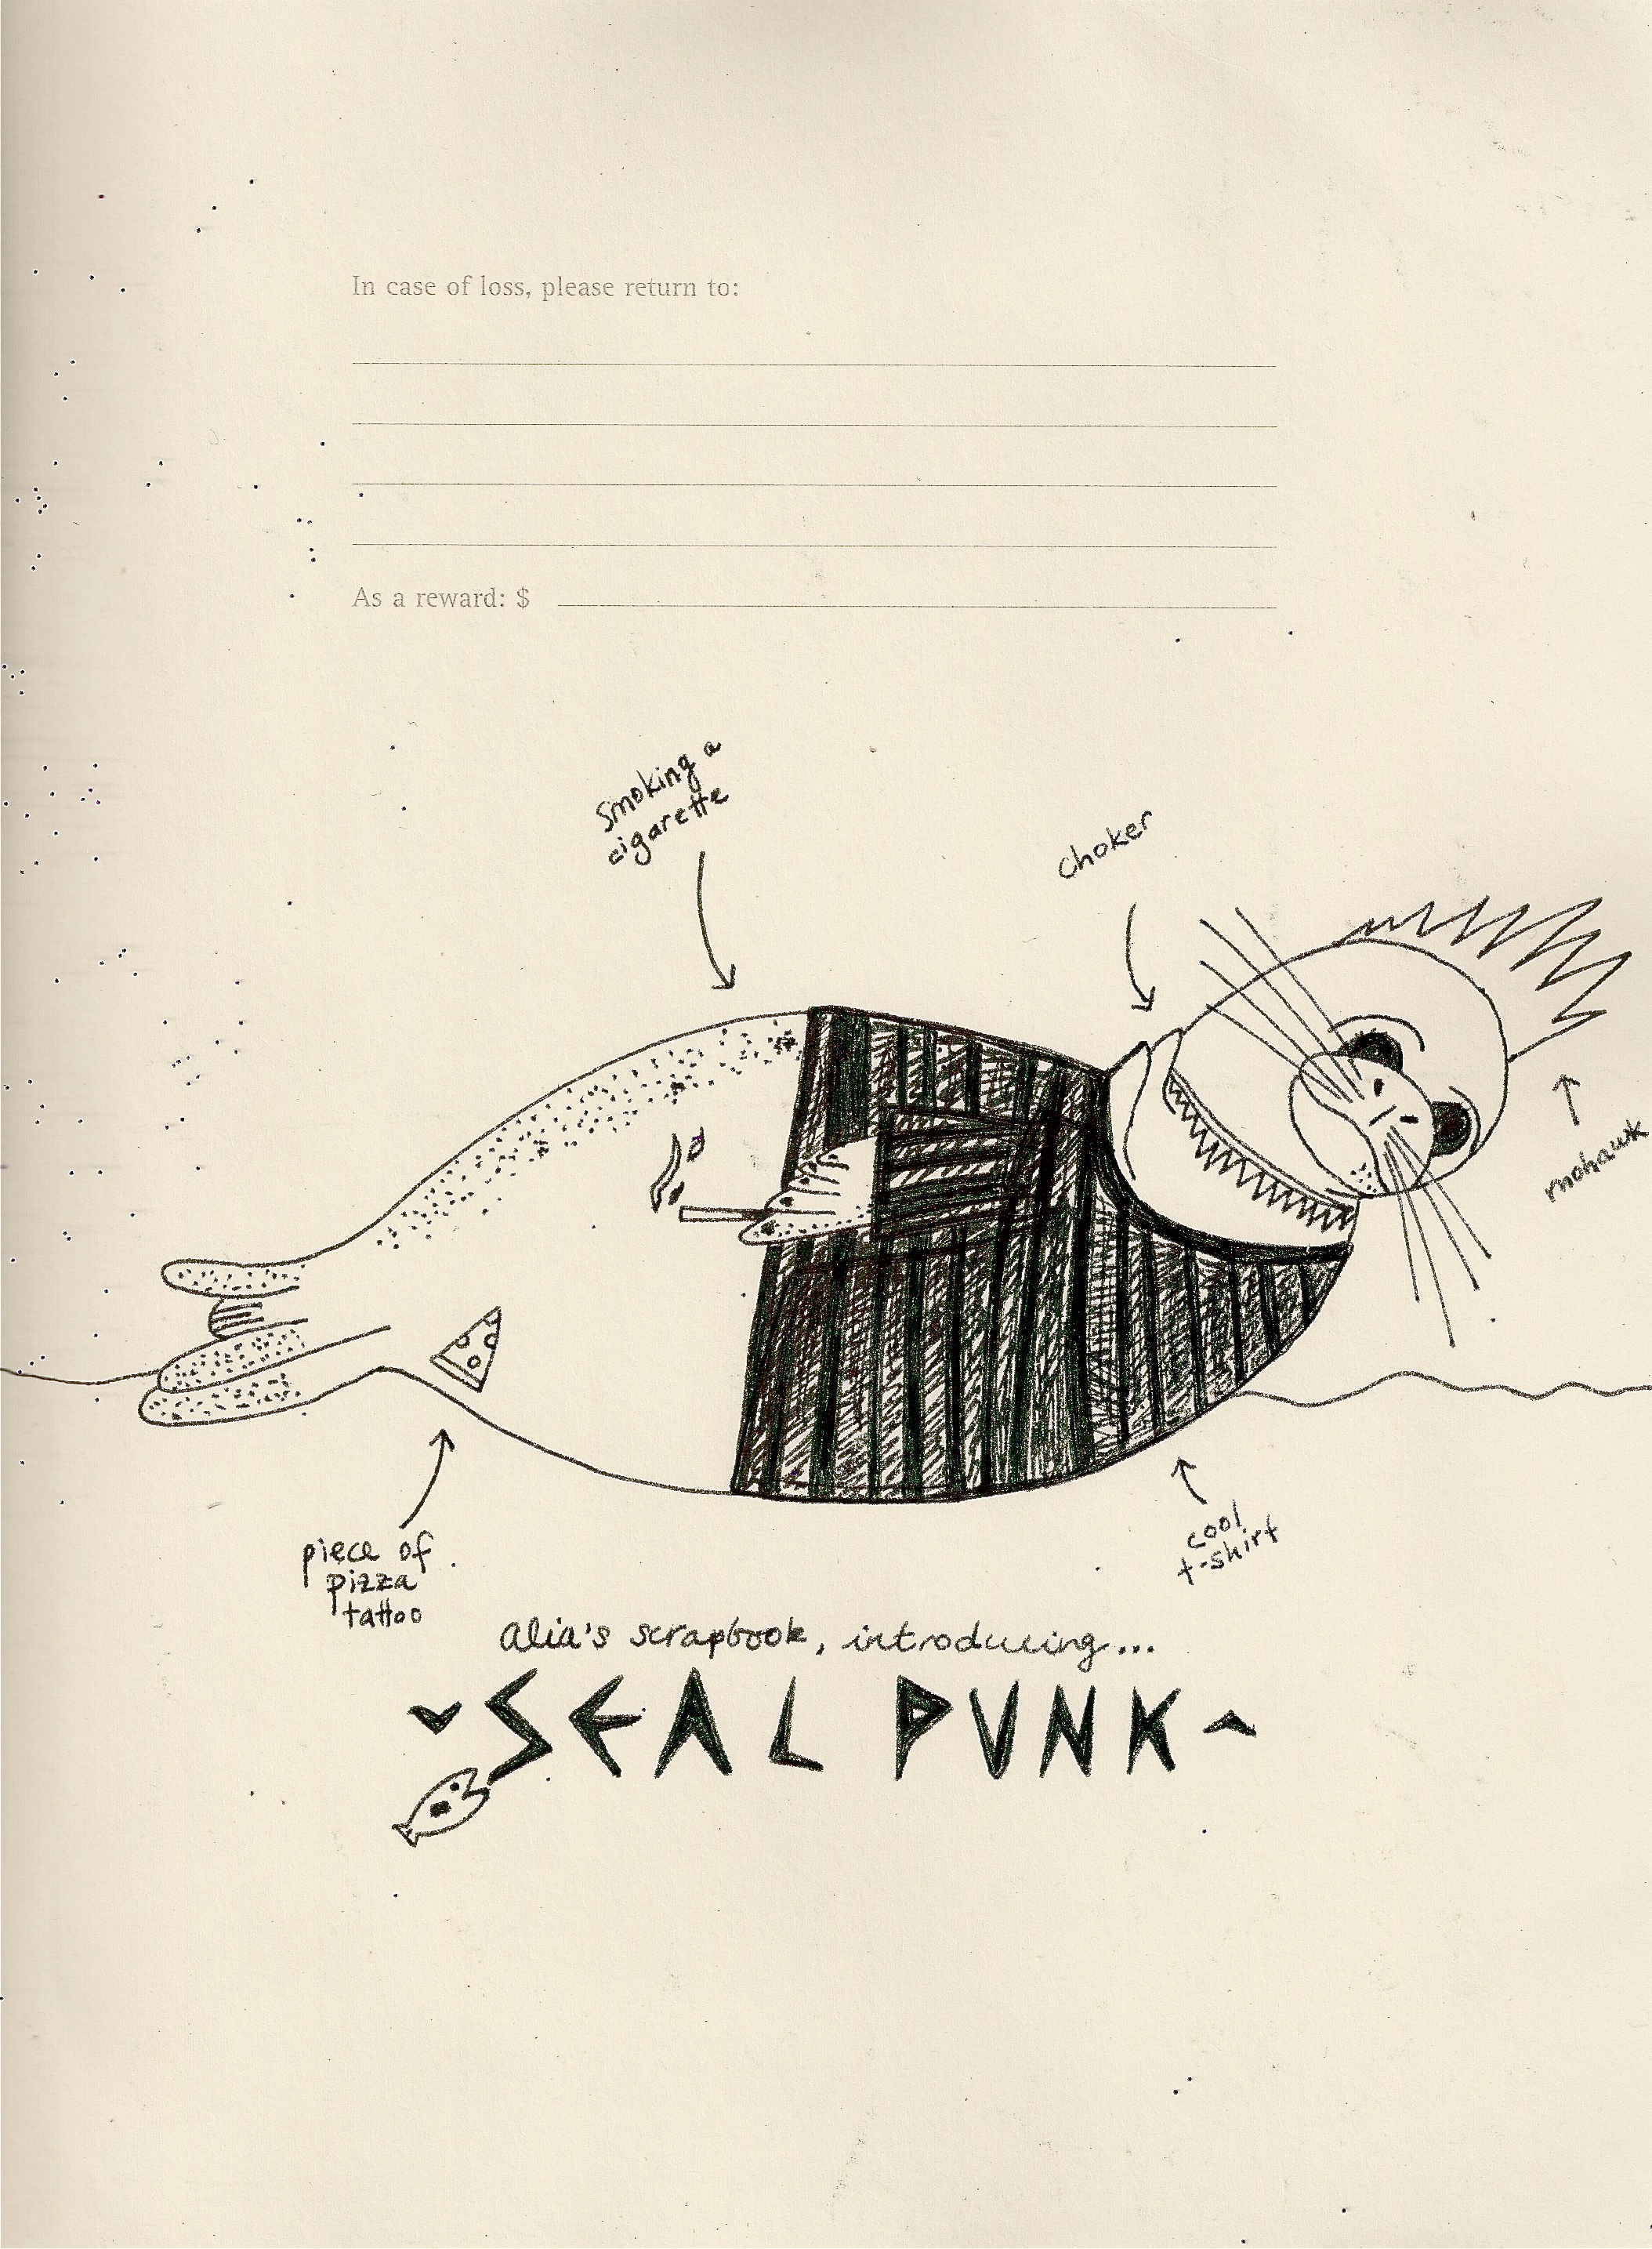 In case of loss, please return to:
As a reward: $
smoking a
cigarette
choker
mohawk
piece of
pizza
tattoo
cool
t-shirt
alia's scrapbook, introducing...
SEAL PUNK